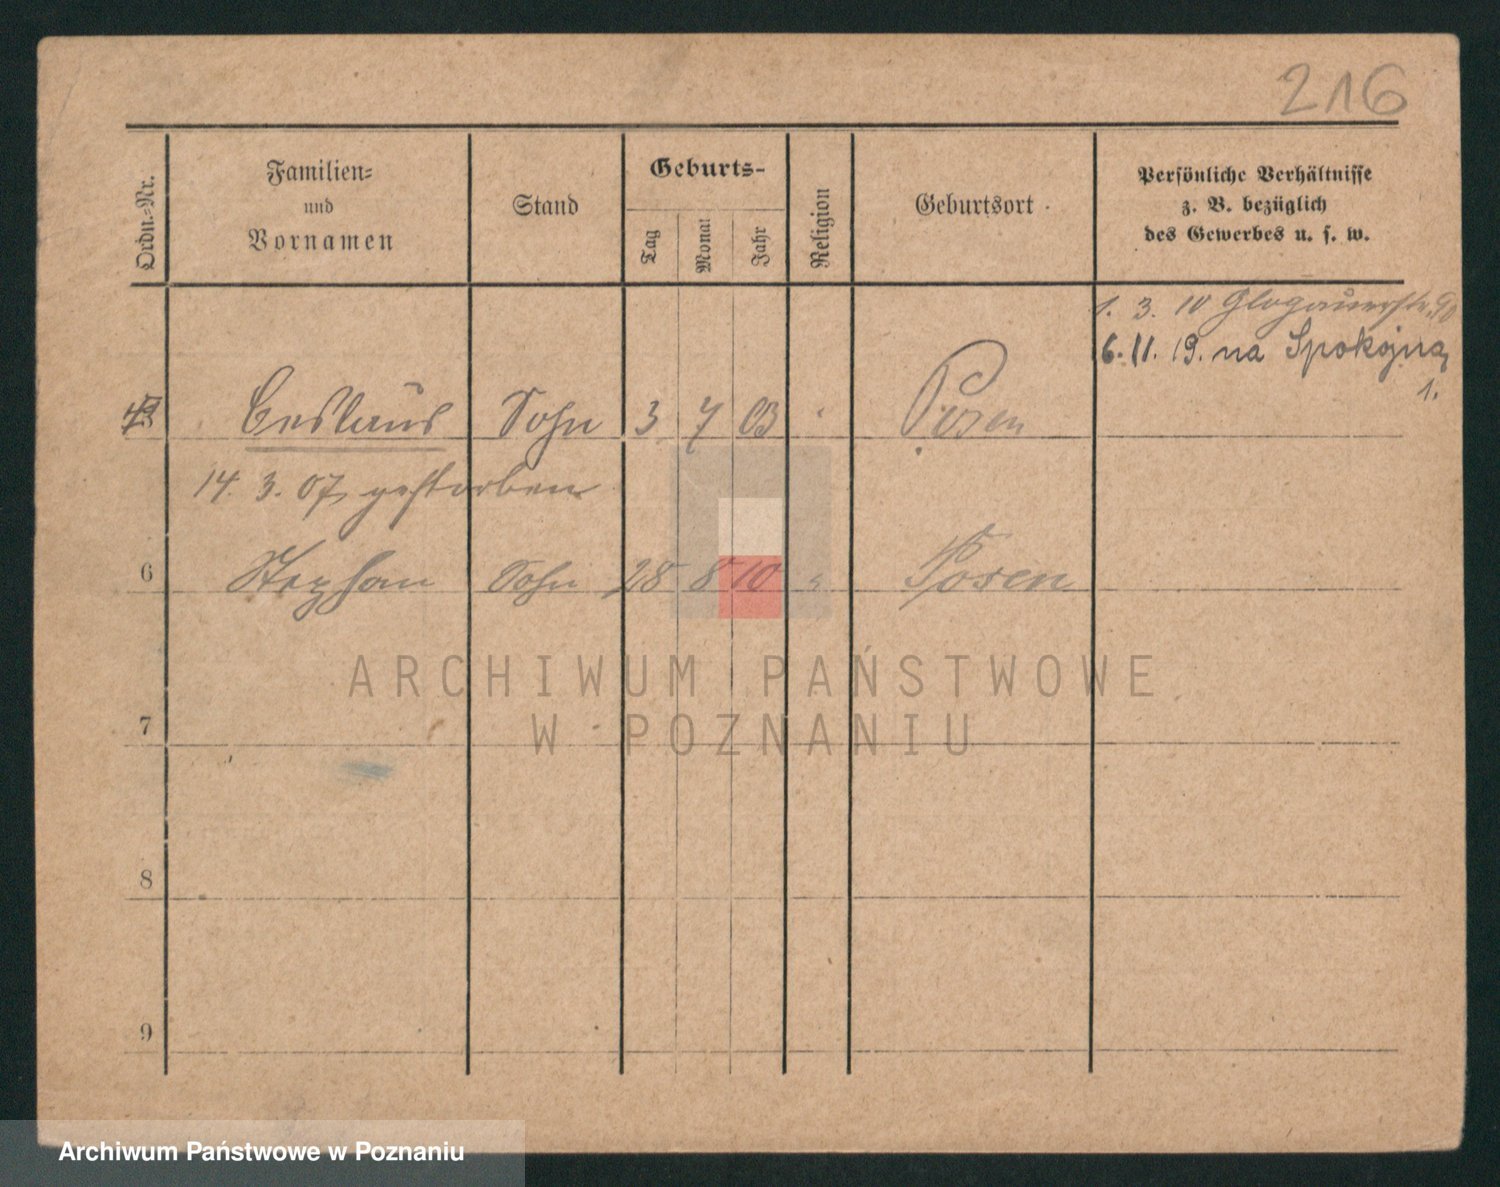 216
Ordn.-Nr.
Familien-
und
Vornamen
Stand
Geburts-
Tag
Monat
Jahr
Religion
Geburtsort
Persönliche Verhältnisse
z. B. bezüglich
des Gewerbes u. s. w.
1. 3. 10 Glogauerstr. 90
6. 11. 19. na Spokojną
1.
Sohn 3 7 03 Posen
14. 3. 07 gestorben
6 Stephan Sohn 28 8 10 " Posen
7
8
9
ARCHIWUM PAŃSTWOWE
W POZNANIU
Archiwum Państwowe w Poznaniu